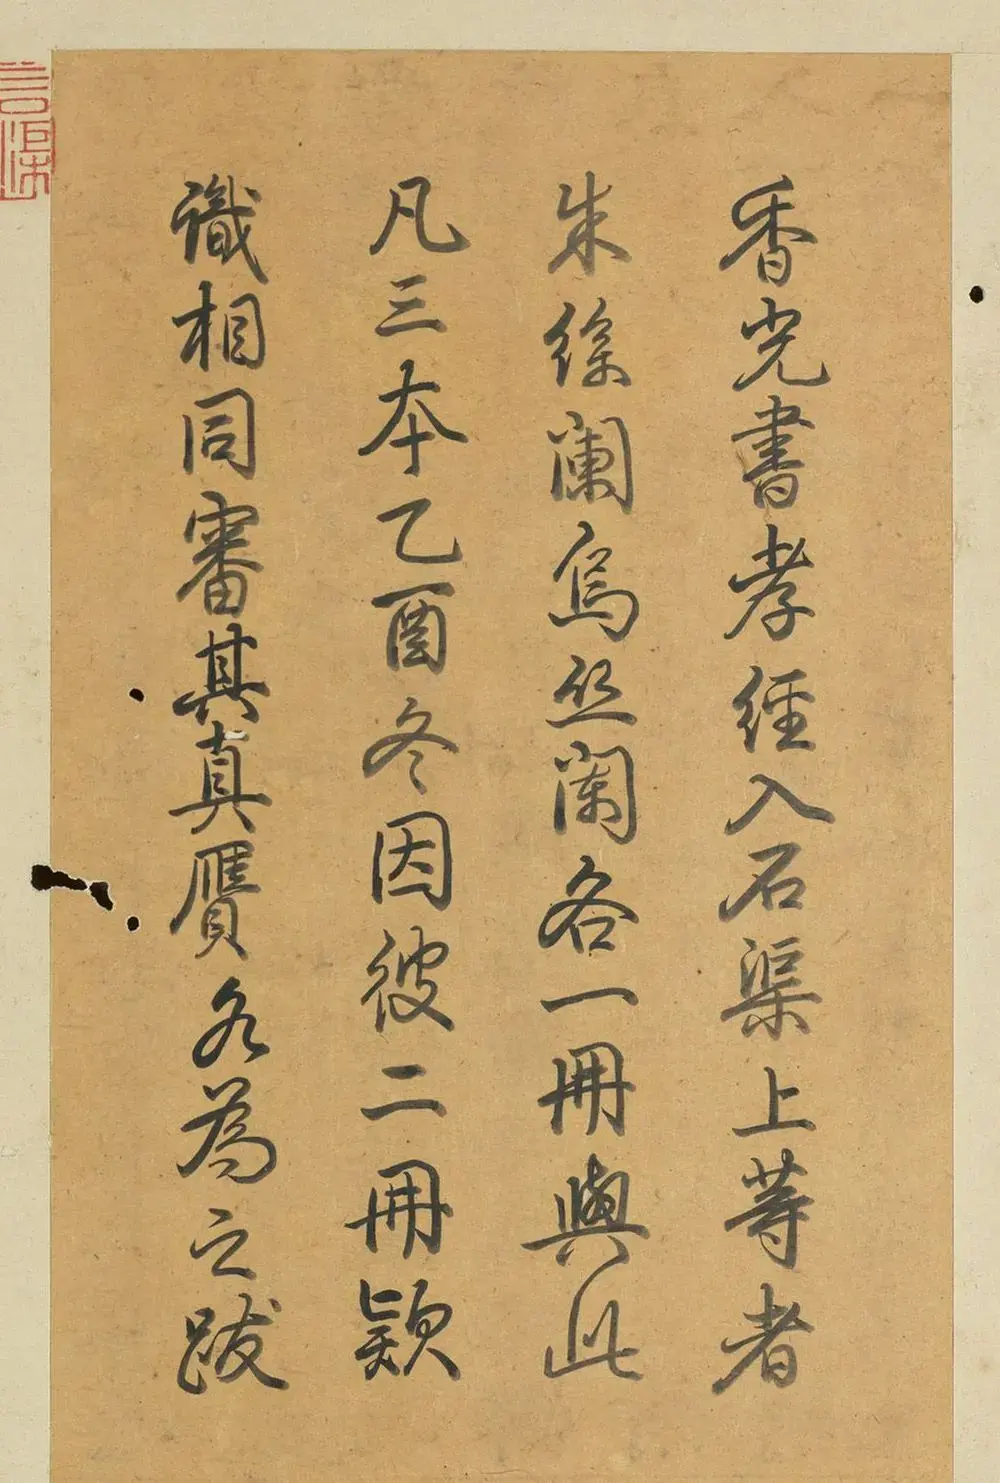 香光書孝經入石渠上等者
朱絲闌烏丝闌各一冊與此
凡三本乙酉冬因彼二冊欵
識相同審其真贋各為之跋